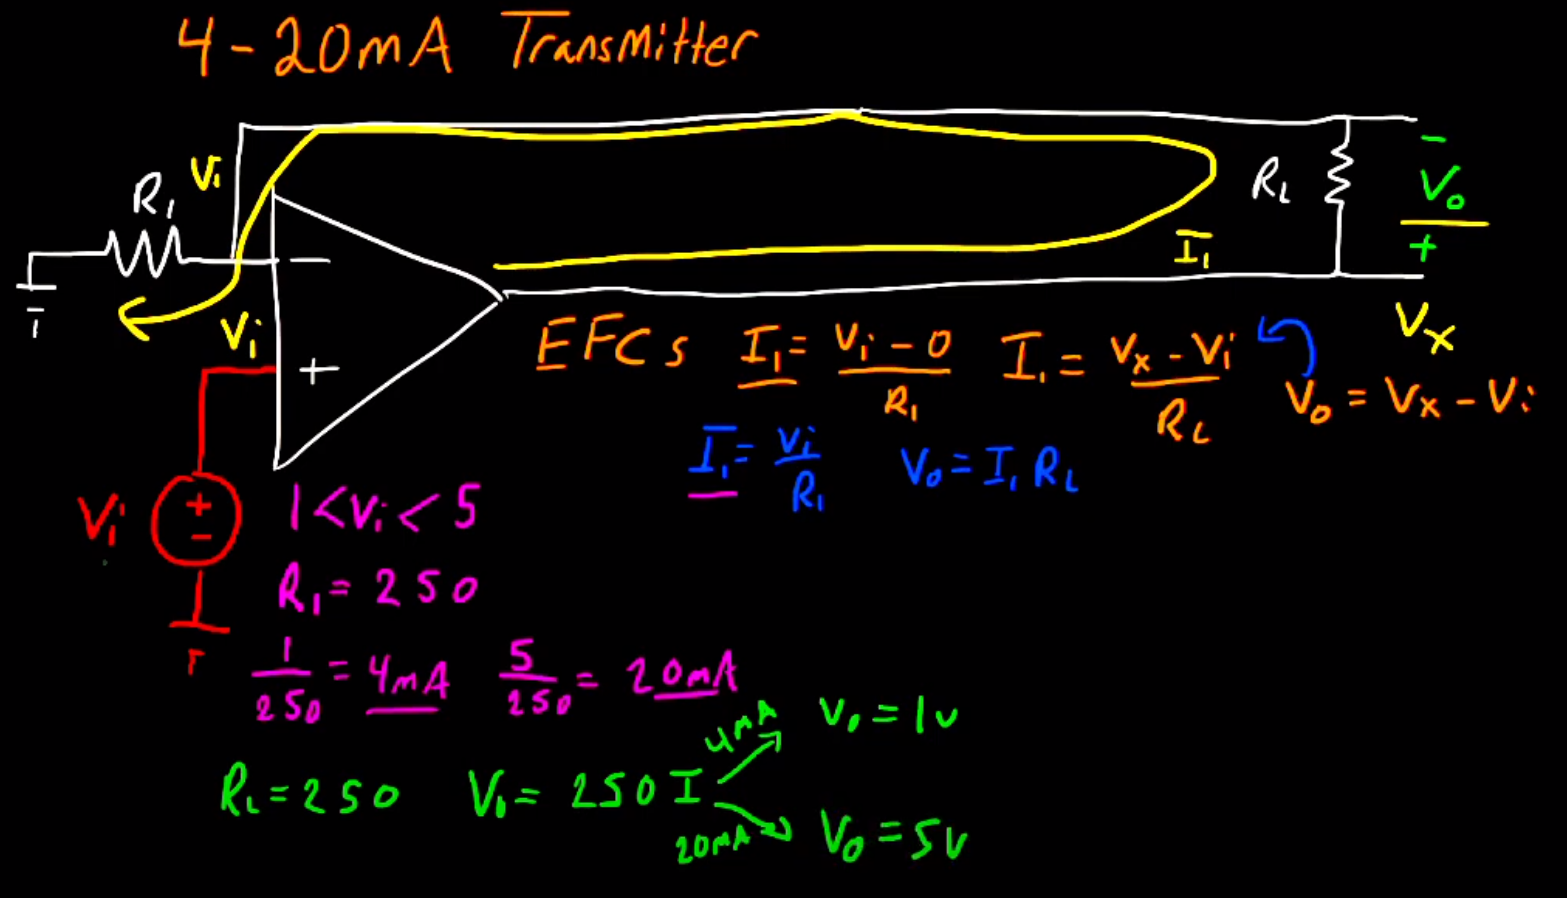 4-20mA Transmitter
Vi
R1
RL
-
Vo
+
I1
Vx
-
Vi
+
EFCs I1 = Vi - 0 / R1 I1 = Vx - Vi / RL Vo = Vx - Vi
I1 = Vi / R1 Vo = I1 RL
Vi
+
-
1 < Vi < 5
R1 = 250
1 / 250 = 4mA 5 / 250 = 20mA
4mA Vo = 1v
RL = 250 Vo = 250 I
20mA Vo = 5v